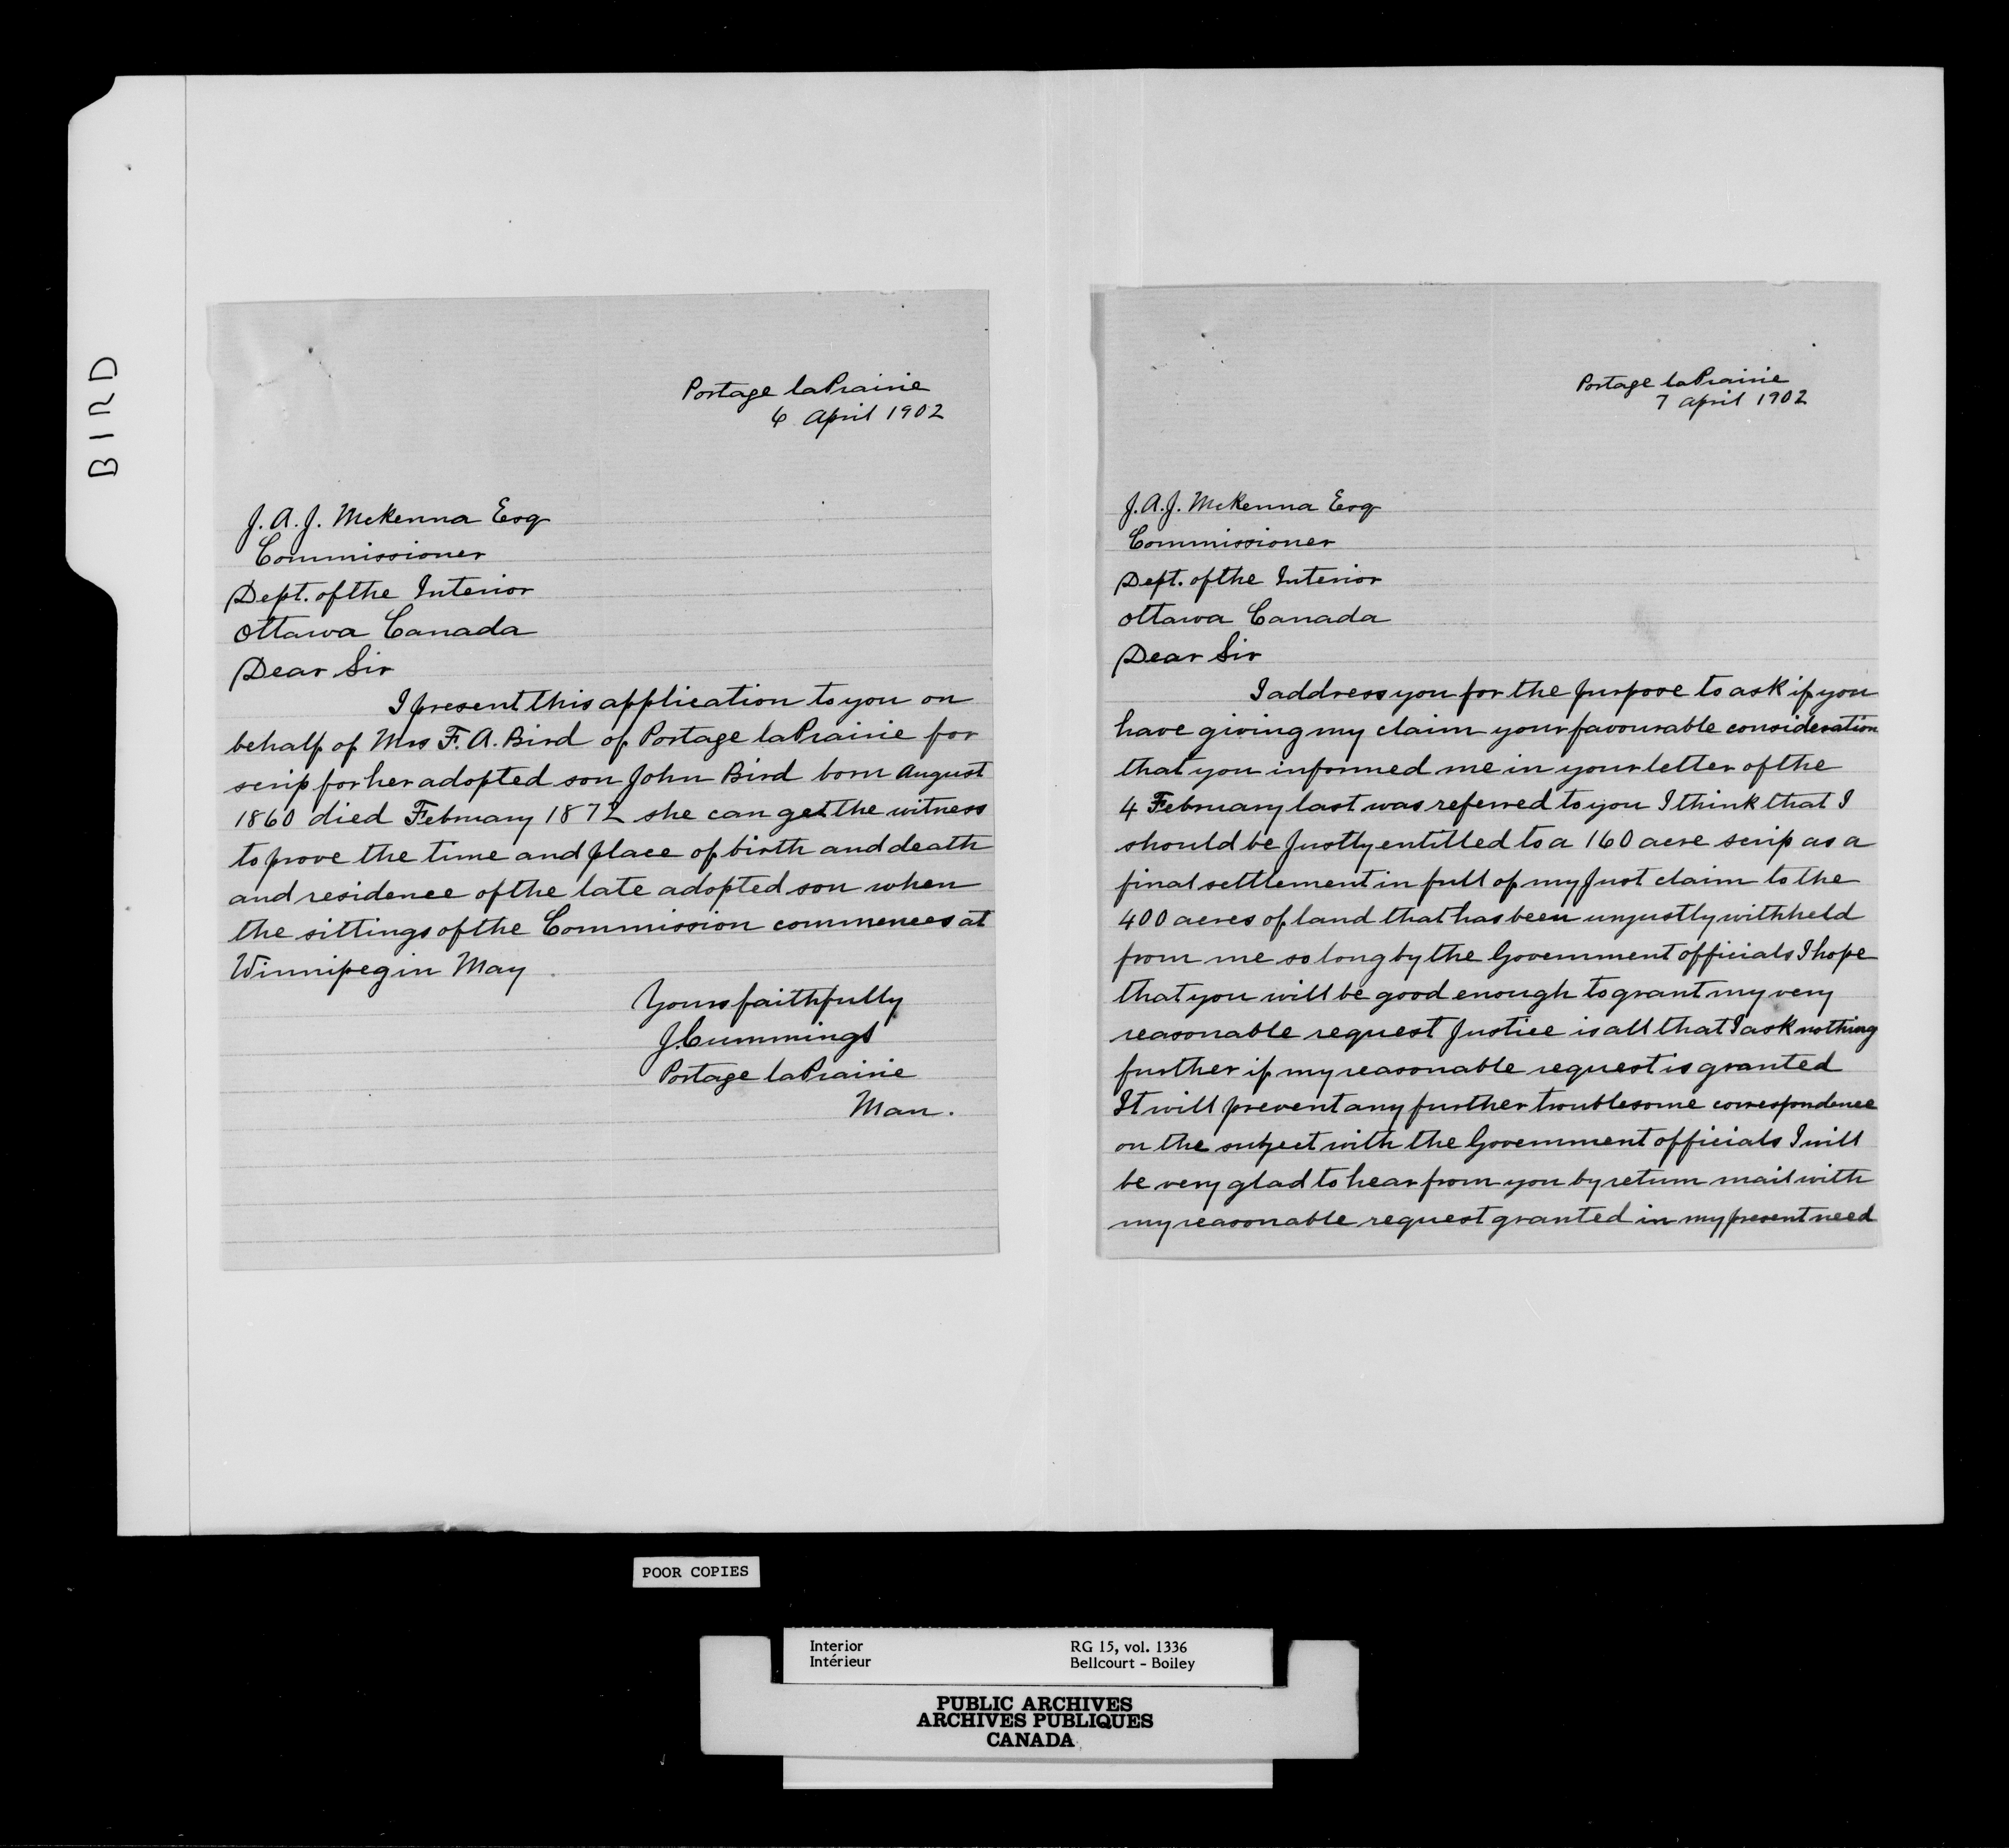 BIRD
Portage laPrairie
6 April 1902
J. A. J. McKenna Esq
Commissioner
Dept. of the Interior
Ottawa Canada
Dear Sir
I present this application to you on
behalf of Mrs F. A. Bird of Portage laPrairie for
scrip for her adopted son John Bird born August
1860 died February 1872 she can get the witness
to prove the time and place of birth and death
and residence of the late adopted son when
the sittings of the Commission commences at
Winnipeg in May
Yours faithfully
J. Cummings
Portage laPrairie
Man.
Portage laPrairie
7 April 1902
J. A. J. McKenna Esq
Commissioner
Dept. of the Interior
Ottawa Canada
Dear Sir
I address you for the purpose to ask if you
have giving my claim your favourable consideration
that you informed me in your letter of the
4 February last was referred to you I think that I
should be Justly entitled to a 160 acre scrip as a
final settlement in full of my Just claim to the
400 acres of land that has been unjustly withheld
from me so long by the Government officials I hope
that you will be good enough to grant my very
reasonable request Justice is all that I ask nothing
further if my reasonable request is granted
It will prevent any further troublesome correspondence
on the subject with the Government officials I will
be very glad to hear from you by return mail with
my reasonable request granted in my present need
POOR COPIES
Interior RG 15, vol. 1336
Intérieur Bellcourt - Boiley
PUBLIC ARCHIVES
ARCHIVES PUBLIQUES
CANADA